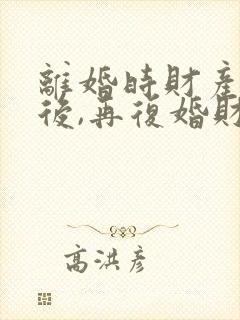 離婚時財產
後,再復婚財
高洪彥